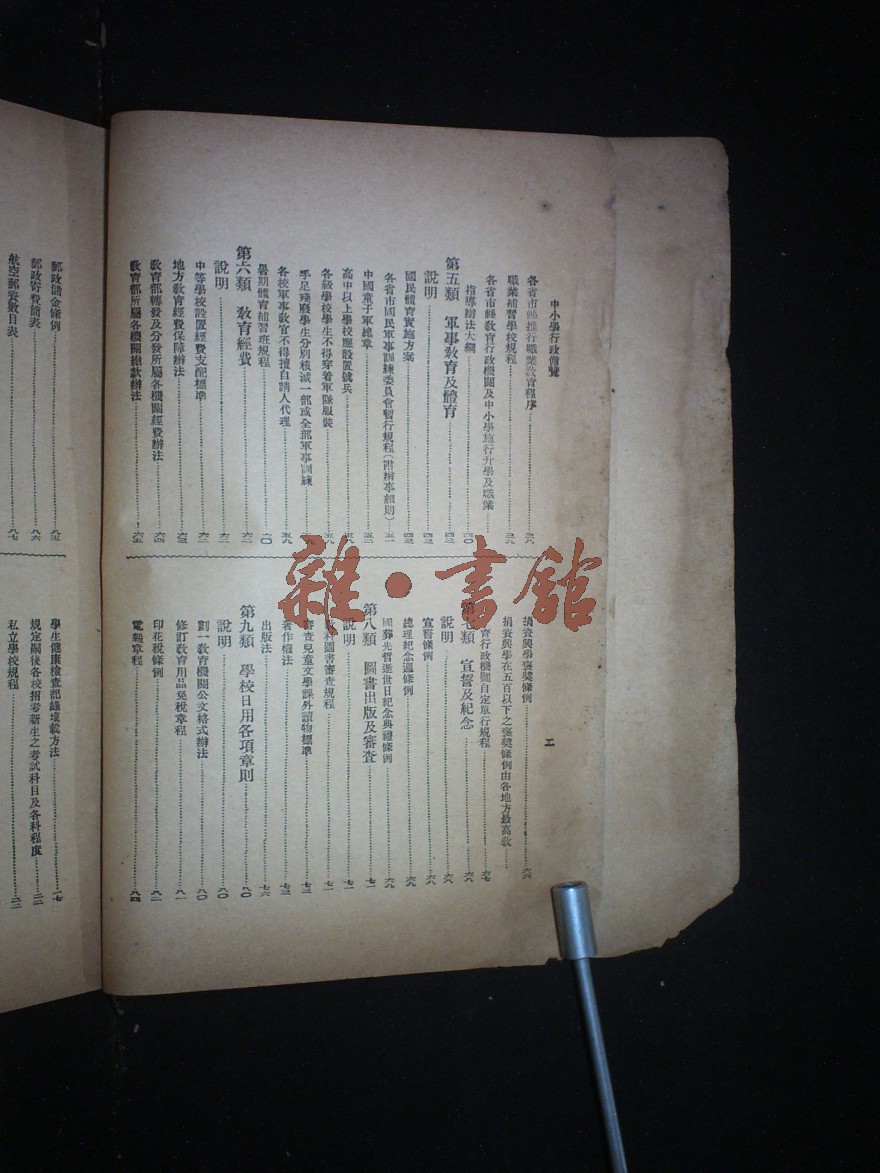 中小學行政備覽
各省市縣推行職業教育程序……三八
職業補習學校規程……三八
各省市縣教育行政機關及中小學施行升學及職業……
指導辦法大綱……四〇
第五類 軍事教育及體育……四三
說明……四三
國民體育實施方案……四三
各省市國民軍事訓練委員會暫行規程(附辦事細則)五一
中國童子軍總章……五三
高中以上學校應設置號兵……五八
各級學校學生不得穿着軍隊服裝……五八
手足殘廢學生分別核減一部或全部軍事訓練……五九
各校軍事教官不得擅自請人代理……五九
暑期體育補習班規程……六〇
第六類 教育經費……六二
說明……六二
中等學校設置經費支配標準……六三
地方教育經費保障辦法……六三
教育部轉發及分發所屬各機關經費辦法……六四
教育部所屬各機關繳款辦法……六五
捐資興學褒獎條例……六六
捐資興學在五百以下之褒獎條例由各地方最高教……
育行政機關自定單行規程……六七
第七類 宣誓及紀念……六八
說明……六八
宣誓條例……六八
總理紀念週條例……六九
國葬先哲逝世日紀念典禮條例……六九
第八類 圖書出版及審查……七一
說明……七一
教科圖書審查規程……七一
審查兒童文學課外讀物標準……七三
著作權法……七三
出版法……七六
第九類 學校日用各項章則……八〇
說明……八〇
劃一教育機關公文格式辦法……八〇
修訂教育用品免稅章程……八一
印花稅條例……八二
電報章程……八四
二
郵政儲金條例……八五
郵政寄費簡表……八六
航空郵資數目表……八七
學生健康檢查記錄填載方法……一七
規定嗣後各校招考新生之考試科目及各科程度……二二
私立學校規程……二三
雜·書館